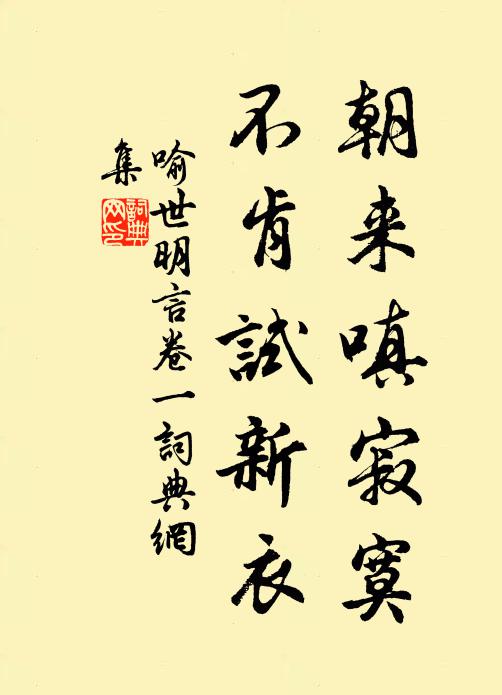 朝来嗔寂寞
不肯試新衣
喻世明言卷一詞典網
集
詞典
网印